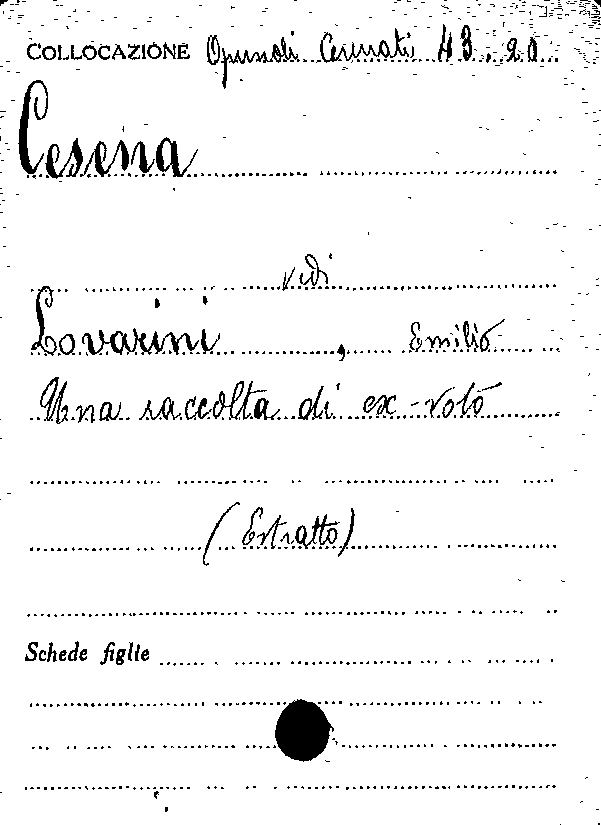 COLLOCAZIONE Opuscoli Cermati 43.20
Cesena
vedi
Lovarini, Emilio
Una raccolta di ex-voto
(Estratto)
Schede figlie